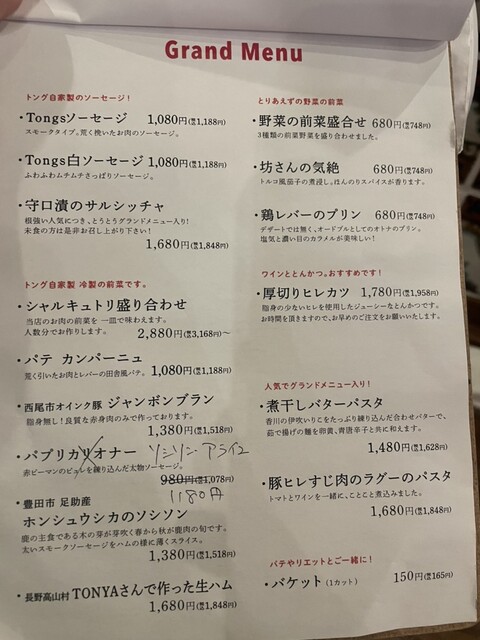 Grand Menu
トング自家製のソーセージ!
・Tongsソーセージ 1,080円(税1,188円)
スモークタイプ。荒く挽いたお肉のソーセージ。
・Tongs白ソーセージ 1,080円(税1,188円)
ふわふわムチムチさっぱりソーセージ。
・守口漬のサルシッチャ
根強い人気につき、とうとうグランドメニュー入り!
未食の方は是非お召し上がり下さい!
1,680円(税1,848円)
トング自家製 冷製の前菜です。
・シャルキュトリ盛り合わせ
当店のお肉の前菜を 一皿で味わえます。
人数分でお作りします。 2,880円(税3,168円)〜
・パテ カンパーニュ
荒く引いたお肉とレバーの田舎風パテ。 1,080円(税1,188円)
・西尾市オインク豚 ジャンボンブラン
脂身無し!良質な赤身肉のみで作っております。
1,380円(税1,518円)
・パプリカリオナー ソシソン・アライユ
赤ピーマンのピューレを練り込んだ太物ソーセージ。
980円(税1,078円)
1180円
・豊田市 足助産
ホンシュウシカのソシソン
鹿の主食である木の芽が芽吹く春から秋が鹿肉の旬です。
太いスモークソーセージをハムの様に薄くスライス。
1,380円(税1,518円)
・長野高山村 TONYAさんで作った生ハム
1,680円(税1,848円)
とりあえずの野菜の前菜
・野菜の前菜盛合せ 680円(税748円)
3種類の前菜野菜を盛り合わせました。
・坊さんの気絶 680円(税748円)
トルコ風茄子の煮浸し。ほんのりスパイスが香ります。
・鶏レバーのプリン 680円(税748円)
デザートでは無く、オードブルとしてのオトナのプリン。
塩気と濃い目のカラメルが美味しい!
ワインととんかつ。おすすめです!
・厚切りヒレカツ 1,780円(税1,958円)
脂身の少ないヒレを使用したジューシーなとんかつです。
お時間を頂きますので、お早めのご注文をお願いいたします。
人気でグランドメニュー入り!
・煮干しバターパスタ
香川の伊吹いりこをたっぷり練り込んだ合わせバターで、
茹で揚げの麺を卵黄、青唐辛子と共に和えます。
1,480円(税1,628円)
・豚ヒレすじ肉のラグーのパスタ
トマトとワインを一緒に、ことこと煮込みました。
1,680円(税1,848円)
パテやリエットとご一緒に!
・バケット(1カット) 150円(税165円)